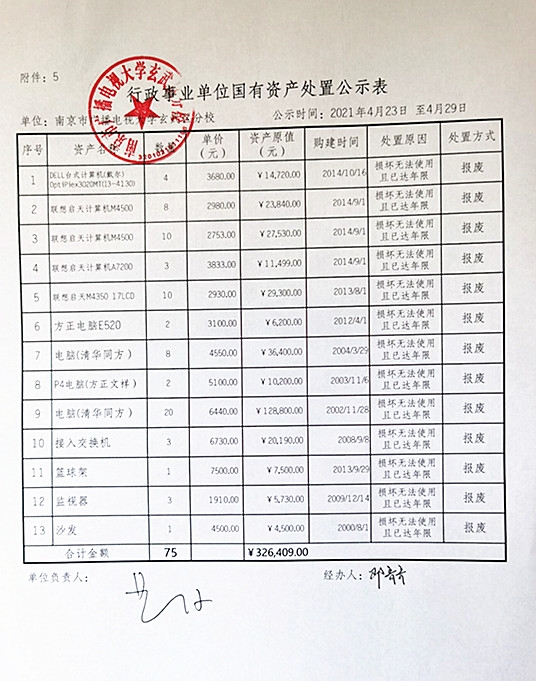 附件：5
行政事业单位国有资产处置公示表
单位：南京市广播电视大学玄武区分校 公示时间：2021年4月23日 至4月29日
序号 资产名 数 单价(元) 资产原值(元) 购建时间 处置原因 处置方式
1 DELL台式计算机(戴尔)OptiPlex3020MT(I3-4130) 4 3680.00 ￥14,720.00 2014/10/16 损坏无法使用且已达年限 报废
2 联想启天计算机M4500 8 2980.00 ￥23,840.00 2014/9/1 损坏无法使用且已达年限 报废
3 联想启天计算机M4500 10 2753.00 ￥27,530.00 2014/9/1 损坏无法使用且已达年限 报废
4 联想启天计算机A7200 3 3833.00 ￥11,499.00 2014/9/1 损坏无法使用且已达年限 报废
5 联想启天M4350 17LCD 10 2930.00 ￥29,300.00 2013/8/1 损坏无法使用且已达年限 报废
6 方正电脑E520 2 3100.00 ￥6,200.00 2012/4/1 损坏无法使用且已达年限 报废
7 电脑(清华同方) 8 4550.00 ￥36,400.00 2004/3/29 损坏无法使用且已达年限 报废
8 P4电脑(方正文祥) 2 5100.00 ￥10,200.00 2003/11/6 损坏无法使用且已达年限 报废
9 电脑(清华同方) 20 6440.00 ￥128,800.00 2002/11/28 损坏无法使用且已达年限 报废
10 接入交换机 3 6730.00 ￥20,190.00 2008/9/8 损坏无法使用且已达年限 报废
11 篮球架 1 7500.00 ￥7,500.00 2013/9/29 损坏无法使用且已达年限 报废
12 监视器 3 1910.00 ￥5,730.00 2009/12/14 损坏无法使用且已达年限 报废
13 沙发 1 4500.00 ￥4,500.00 2000/8/1 损坏无法使用且已达年限 报废
合计金额 75 ￥326,409.00
单位负责人： 经办人：